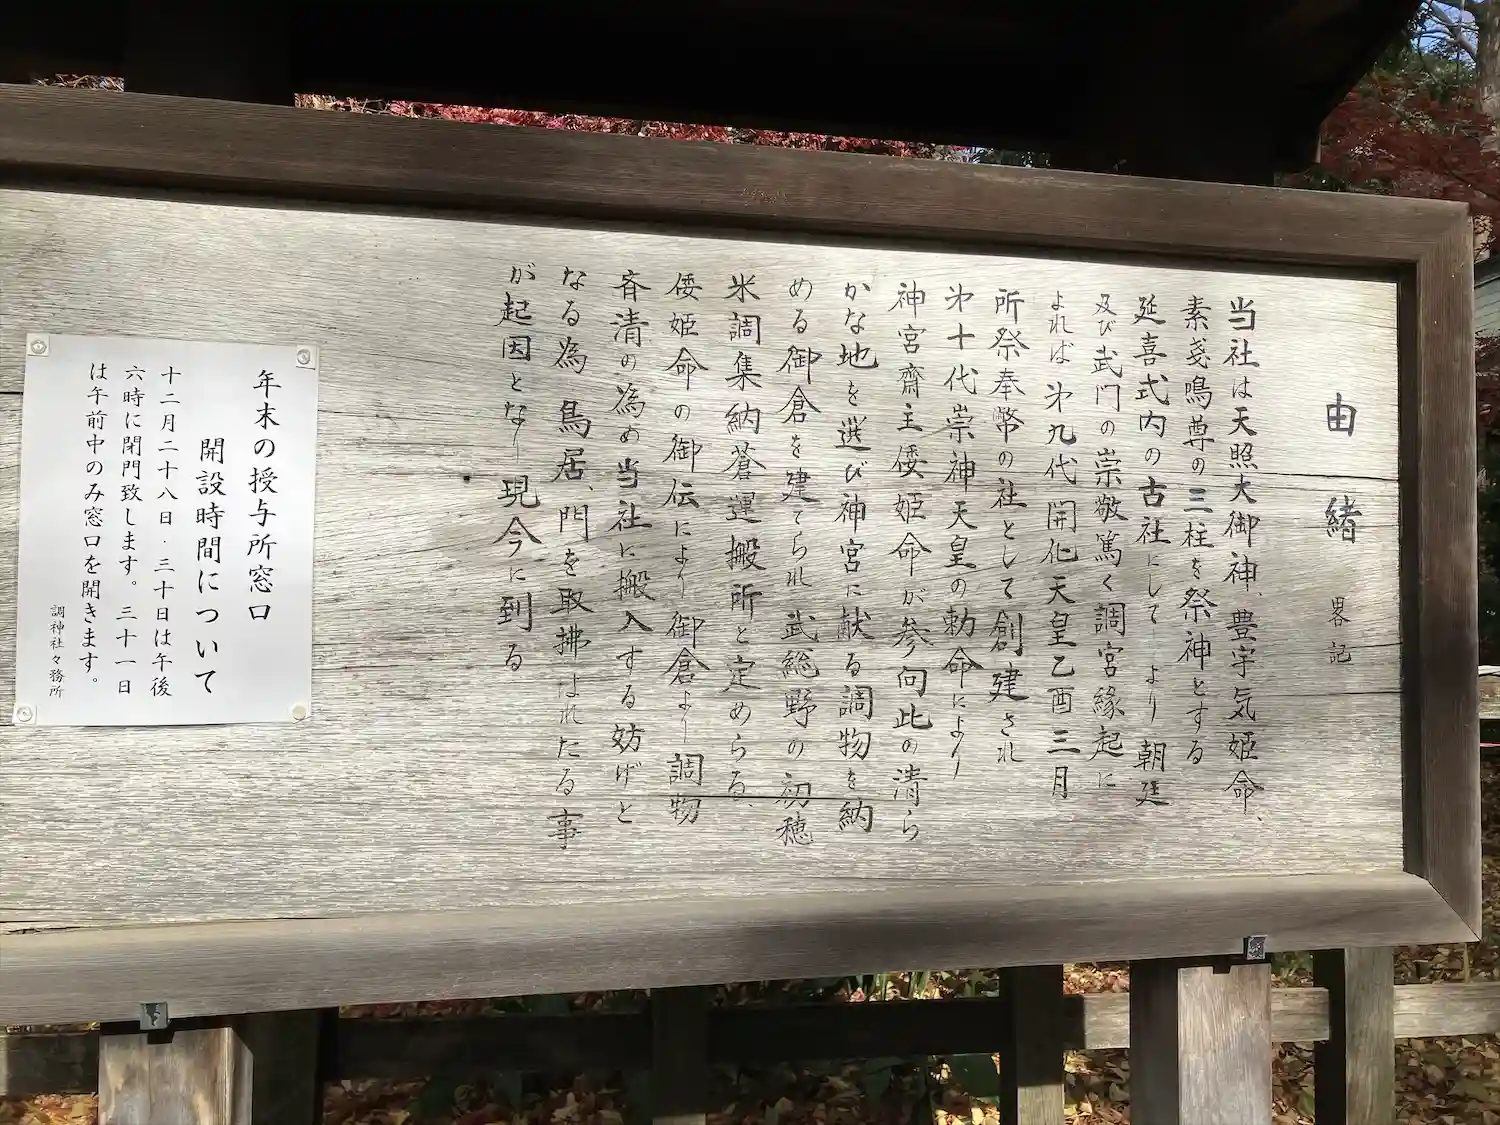 由緒 畧記
当社は天照大御神、豊宇気姫命、
素戔鳴尊の三柱を祭神とする
延喜式内の古社にして より 朝廷
及び武門の崇敬篤く調宮縁起に
よれば 㐧九代開化天皇乙酉三月
所祭奉幣の社として創建され
㐧十代崇神天皇の勅命により
神宮齋主倭姫命が参向此の清ら
かな地を選び神宮に献る調物を納
める御倉を建てられ 武総野の初穂
米調集納蒼運搬所と定めらる、
倭姫命の御伝により御倉より調物
斉清の為め当社に搬入する妨げと
なる為鳥居、門を取拂はれたる事
が起因となり現今に到る
年末の授与所窓口
開設時間について
十二月二十八日・三十日は午後
六時に閉門致します。三十一日
は午前中のみ窓口を開きます。
調神社々務所